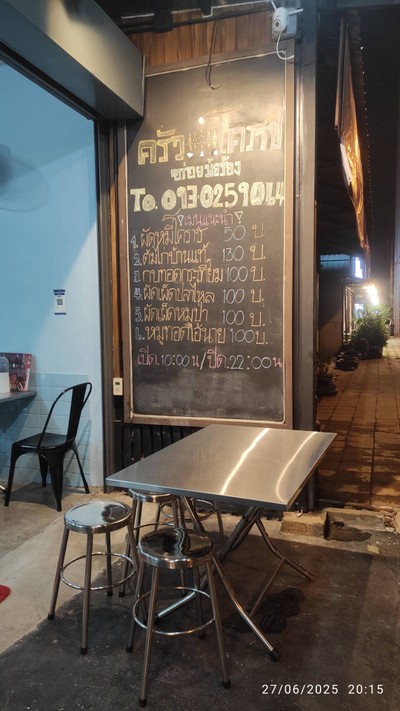 ครัว
อร่อยมีสร้อง
To. 0930259044
เมนูแนะนำ
1. ผัดหมี่โคราช 50 บ.
2. ต้มไก่บ้านแท้ 130 บ.
3. กบทอดกระเทียม 100 บ.
4. ผัดเผ็ดปลาไหล 100 บ.
5. ผัดเผ็ดหมูป่า 100 บ.
6. หมูทอดไอ้นาย 100 บ.
เปิด. 10:00 น / ปิด. 22:00 น
27/06/2025 20:15